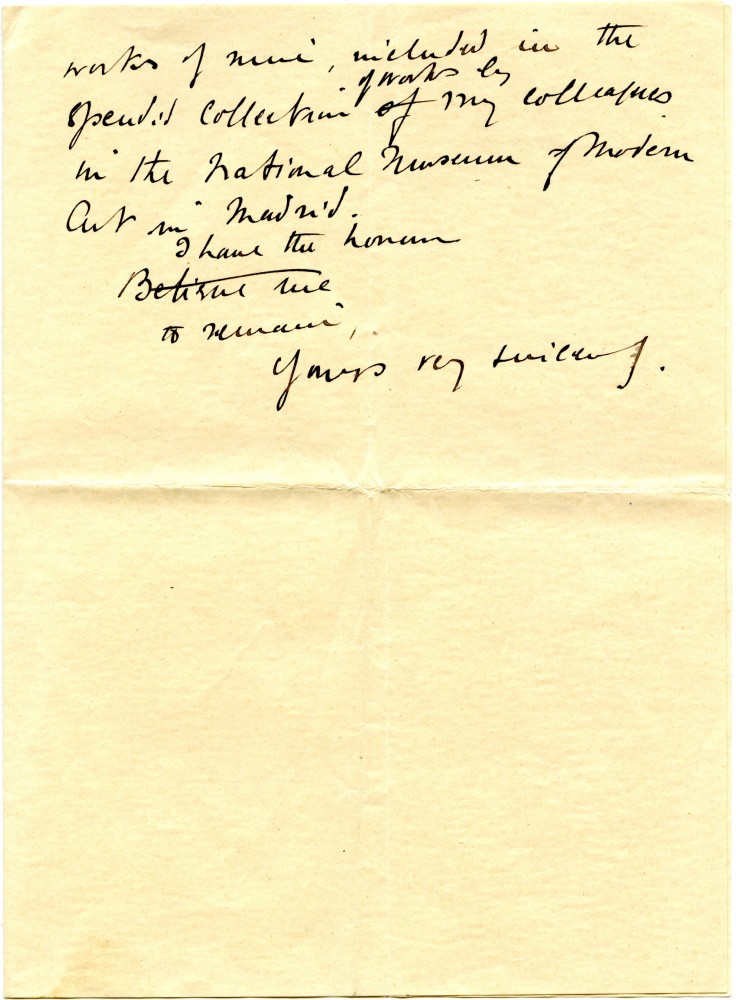 works of mine, included in the
of works by
spendid Collection of my colleagues
in the National Museum of Modern
Art in Madrid.
I have the honour
Believe me
to remain,
Yours very sincerely.